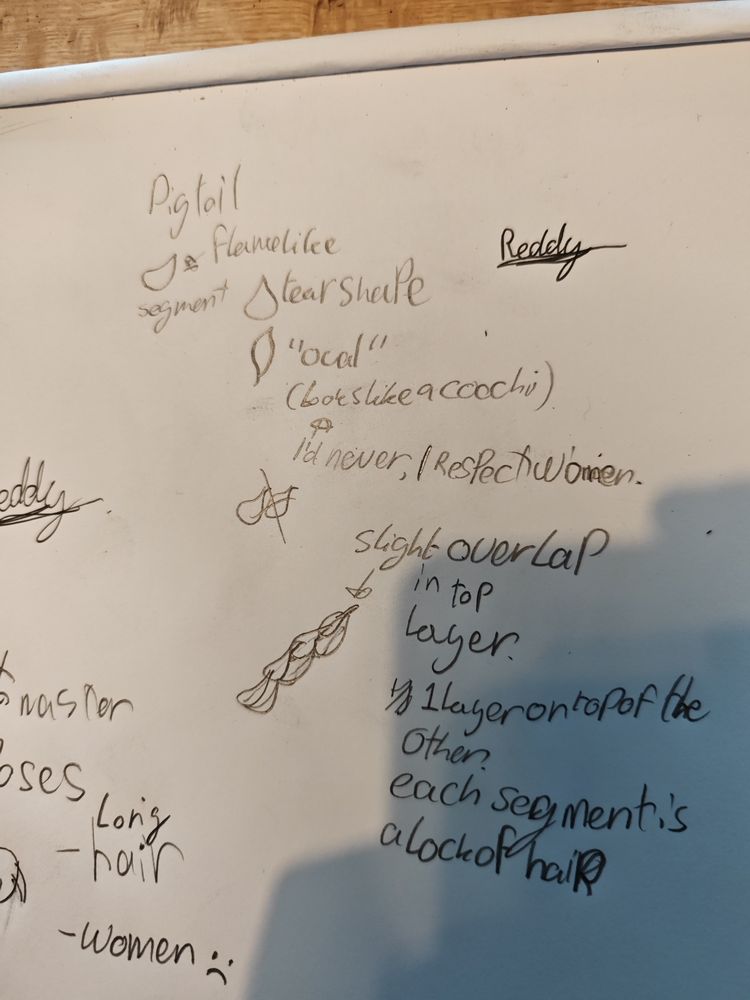 Pigtail
flamelike
segment
tearshape
"ocal"
(lookslike a coochi)
I'd never, I Respect Women.
Reddy
eddy
slight overlap
in top
layer.
1 layer on top of the
other.
each segment is
a lock of hair
master
oses
Long
- hair
- women :(